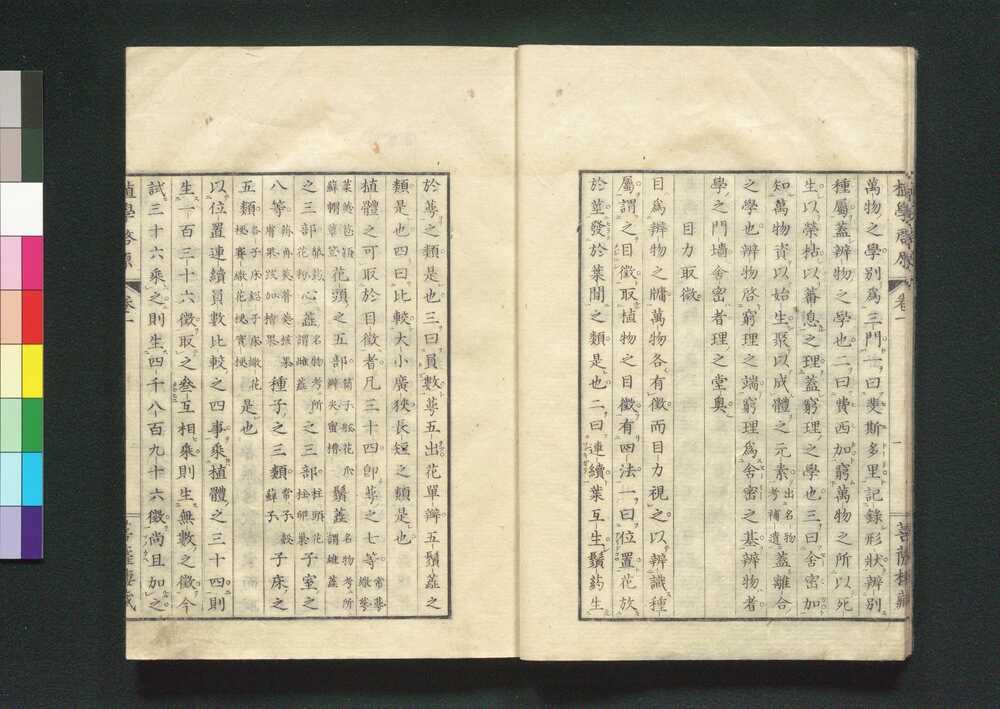 植學啓原 卷一 一 菩薩樓藏
萬物之學別爲三門一曰斐斯多里記錄形狀辨別
種屬蓋辨物之學也二曰費西加窮萬物之所以死
生以榮枯以蕃息之理蓋窮理之學也三曰舍密加
知萬物資以始生聚以成體之元素出名物考補遺蓋離合
之學也辨物啓窮理之端窮理爲舍密之基辨物者
學之門墻舍密者理之堂奧
目力取徵
目爲辨物之牖萬物各有徵而目力視之以辨識種
屬謂之目徵取植物之目徵有四法一曰位置花放
於莖發於葉間之類是也二曰連續葉互生鬚葯生
於萼之類是也三曰員數萼五出花單瓣五鬚蕋之
類是也四曰比較大小廣狹長短之類是也
植體之可取於目徵者凡三十四卽萼之七等
花頭之五部 鬚蕋謂雄蕋
之三部 心蕋謂雌蕋之三部 子室之
八等 種子之三類 子床之
五類 是也
以位置連續員數比較之四事乘植體之三十四則
生一百三十六徵取之叄互相乘則生無數之徵今
試三十六乘之則生四千八百九十六徵尙且加之
植學啓原 卷一 菩薩樓藏